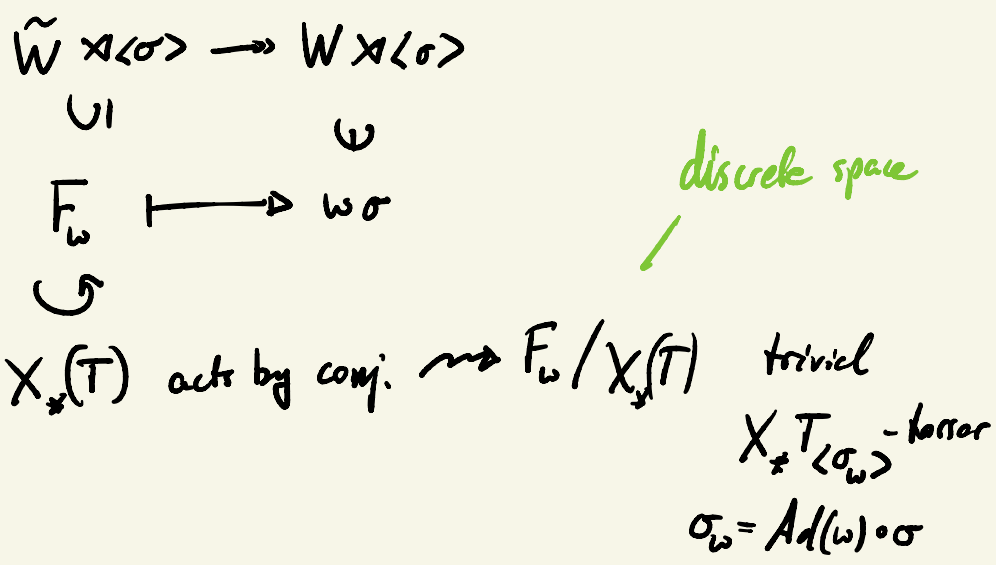 W̃ ⋊<σ> ↠ W⋊<σ>
∪| ∪|
F_w ↦ wσ
discrete space
X_*(T) acts by conj. ⇝ F_w / X_*(T) trivial
X_*T_{<σ_w>} - torsor
σ_w = Ad(w)∘σ